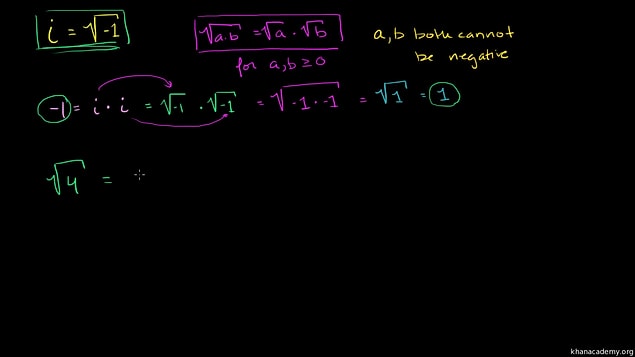 i = √-1
√a·b = √a · √b
for a,b ≥ 0
a,b both cannot
be negative
-1 = i · i = √-1 · √-1 = √-1 · -1 = √1 = 1
√4 =
khanacademy.org